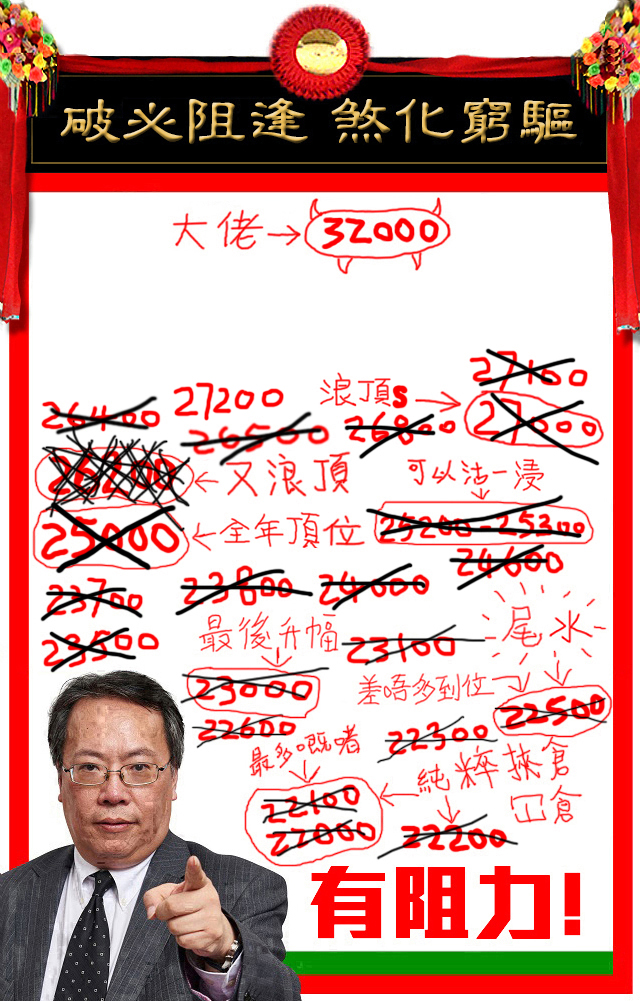 破必阻逢 煞化窮驅
大佬→ 32000
27100
26400 27200 浪頂s→ 27000
26500 26800
26200 ←又浪頂 可以沽一浸
25000 ←全年頂位 25200-25300
24600
23700 23800 24000
23500 最後升幅 23100 尾水
23000 差唔多到位 22500
22600 22300
最多嘅啫 ←純粹挾倉
22100 冚倉
22000 22200
有阻力!